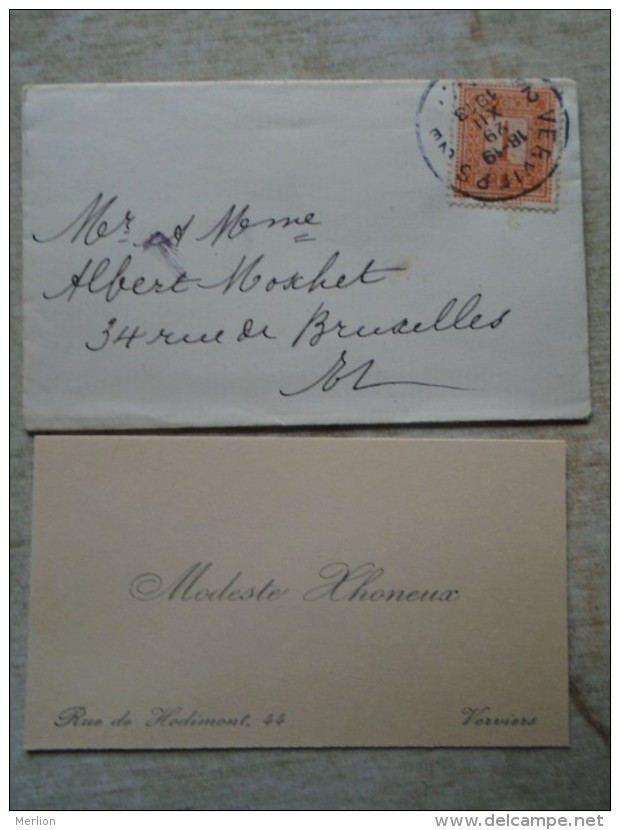 VERVIERS
18-19
29
XII
1913
Mr & Mme
Albert Moxhet
34 rue de Bruxelles
Modeste Xhoneux
Rue de Hodimont, 44 Verviers
Merlion
www.delcampe.net